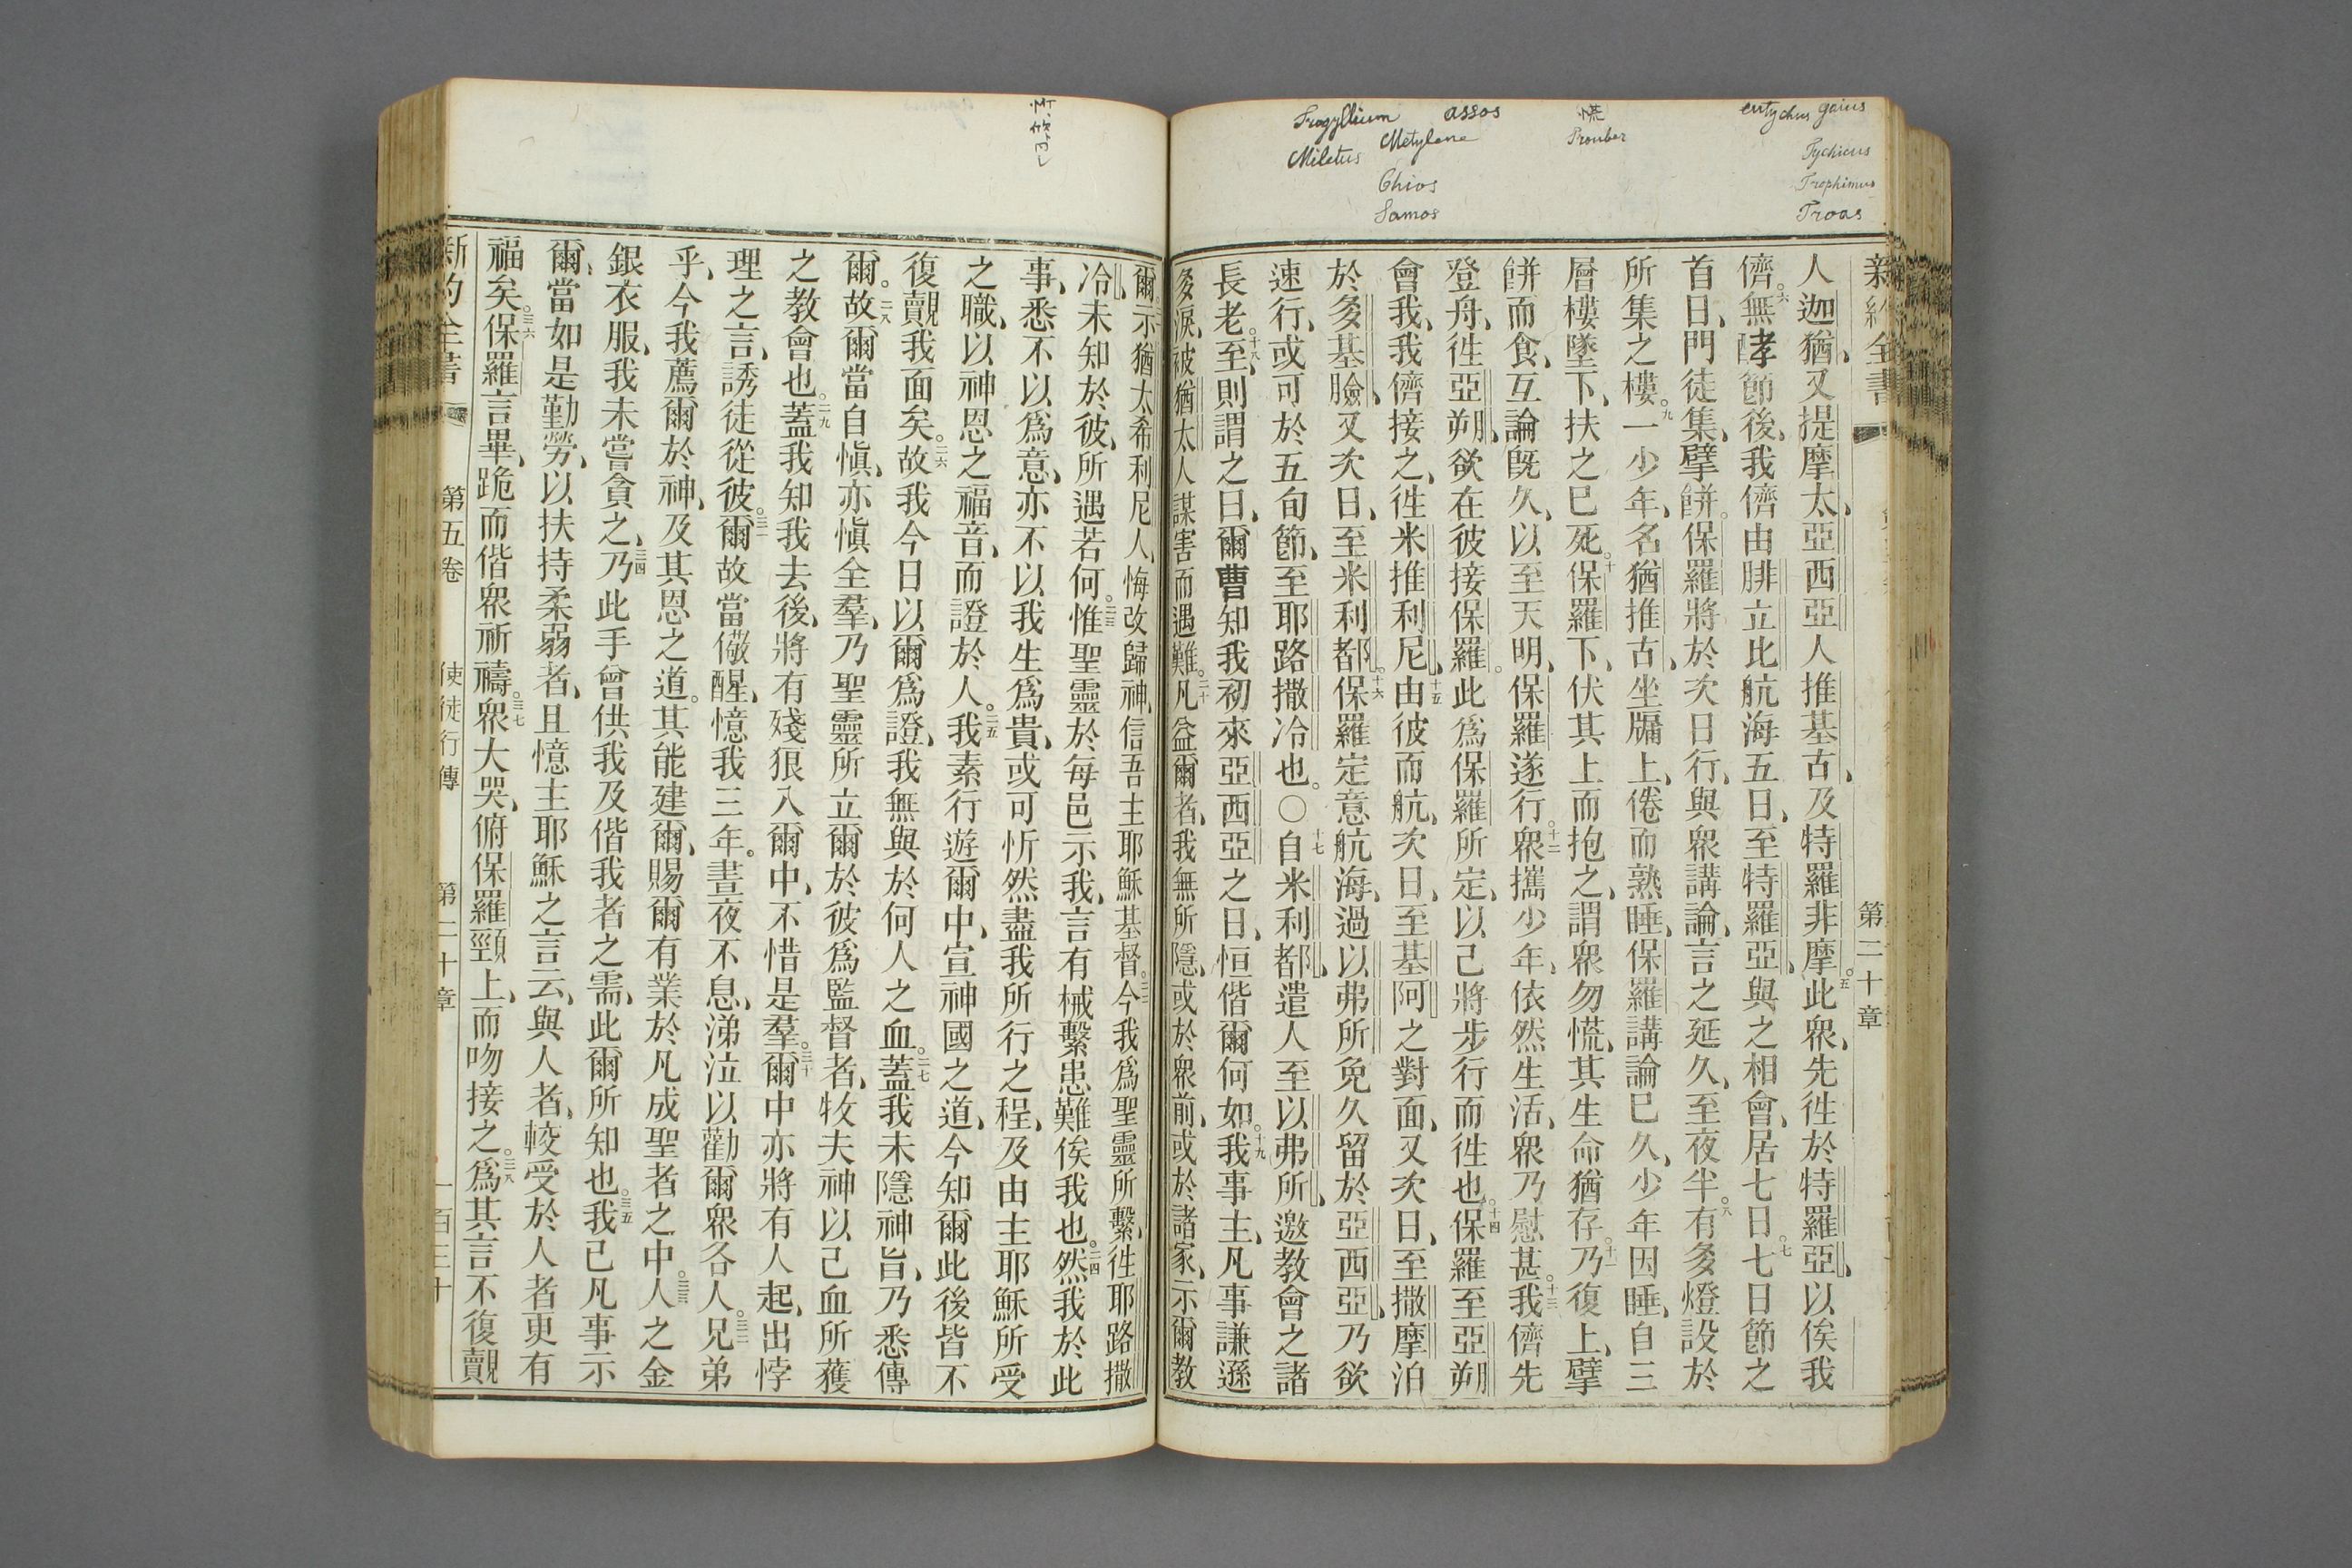 eutychus gaius
Tychicus
Trophimus
Troas
慌
assos
Trogyllium
Metylene
Miletus
Chios
Samos
新約全書
第二十章
人迦猶、又提摩太、亞西亞人推基古、及特羅非摩。五此衆、先徃於特羅亞、以俟我
儕。六無酵節後、我儕由腓立比航海五日、至特羅亞、與之相會、居七日。七七日節之
首日、門徒集、擘餅。保羅將於次日行、與衆講論、言之延久、至夜半。八有多燈設於
所集之樓。九一少年、名猶推古、坐牖上、倦而熟睡、保羅講論已久、少年因睡、自三
層樓墜下、扶之已死。十保羅下、伏其上而抱之、謂衆勿慌、其生命猶存。十一乃復上、擘
餅而食、互論旣久、以至天明、保羅遂行。十二衆攜少年、依然生活、衆乃慰甚。十三我儕先
登舟、徃亞朔、欲在彼接保羅。此爲保羅所定、以己將步行而徃也。十四保羅至亞朔
會我、我儕接之、徃米推利尼、十五由彼而航、次日、至基阿之對面、又次日、至撒摩泊
於多基臉、又次日、至米利都。十六保羅定意航海、過以弗所、免久留於亞西亞、乃欲
速行、或可於五旬節、至耶路撒冷也。〇十七自米利都、遣人至以弗所、邀教會之諸
長老。十八至、則謂之曰、爾曹知我初來亞西亞之日、恒偕爾何如。十九我事主、凡事謙遜
多淚、被猶太人謀害而遇難。二十凡益爾者、我無所隱、或於衆前、或於諸家、示爾教
爾。示猶太希利尼人、悔改歸神、信吾主耶穌基督。二二今我爲聖靈所繫、徃耶路撒
冷、未知於彼、所遇若何。二三惟聖靈於每邑示我、言有械繫患難俟我也。二四然我於此
事、悉不以爲意、亦不以我生爲貴、或可忻然盡我所行之程、及由主耶穌所受
之職、以神恩之福音、而證於人。二五我素行遊爾中、宣神國之道、今知爾此後皆不
復覿我面矣。二六故我今日以爾爲證、我無與於何人之血。二七蓋我未隱神旨、乃悉傳
爾。二八故爾當自愼、亦愼全羣、乃聖靈所立爾於彼爲監督者、牧夫神以己血所獲
之教會也。二九蓋我知我去後、將有殘狠入爾中、不惜是羣。三十爾中亦將有人起、出悖
理之言、誘徒從彼。三一爾故當儆醒、憶我三年。晝夜不息、涕泣以勸爾衆各人。三二兄弟
乎、今我薦爾於神、及其恩之道。其能建爾、賜爾有業於凡成聖者之中。三三人之金
銀衣服、我未嘗貪之、三四乃此手曾供我及偕我者之需、此爾所知也。三五我己凡事示
爾、當如是勤勞、以扶持柔弱者、且憶主耶穌之言云、與人者、較受於人者更有
福矣。三六保羅言畢、跪而偕衆祈禱。三七衆大哭、俯保羅頸上、而吻接之。三八爲其言不復覿
新約全書 第五卷 使徒行傳 第二十章 一百三十